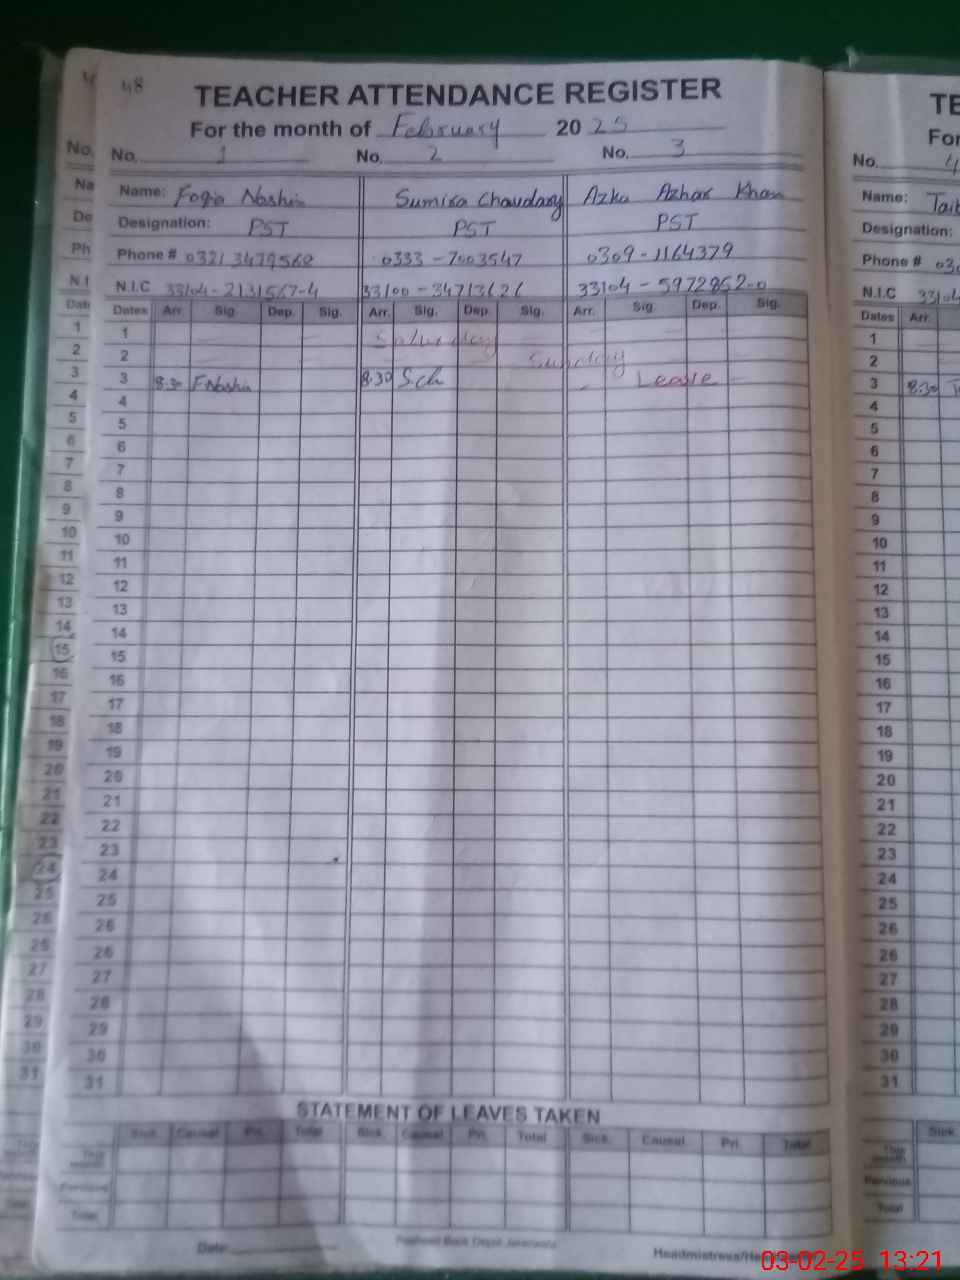 48
TEACHER ATTENDANCE REGISTER
For the month of February 2025
No. 1 No. 2 No. 3
Name: Fogia Noshin Sumira Chaudary Azka Azhar Khan
Designation: PST PST PST
Phone # 0321 3479568 0333-7003547 0309-1164379
N.I.C 33104-2131567-4 33100-34713626 33104-5972852-0
Dates Arr. Sig. Dep. Sig. Arr. Sig. Dep. Sig. Arr. Sig. Dep. Sig.
1 Saturday
2 Sunday
3 8.30 F.Noshin 8.30 S.ch Leave
4
5
6
7
8
9
10
11
12
13
14
15
16
17
18
19
20
21
22
23
24
25
26
26
27
28
29
30
31
STATEMENT OF LEAVES TAKEN
Sick. Causal Pri. Total Sick. Causal Pri. Total Sick. Causal Pri. Total
This month
Pervious
Total
Date:
Headmistress/
TE
For
No. 4
Name: Taib
Designation:
Phone # 03
N.I.C 33104
Dates Arr.
1
2
3 8.30
4
5
6
7
8
9
10
11
12
13
14
15
16
17
18
19
20
21
22
23
24
25
26
26
27
28
29
30
31
Sick
This month
Pervious
Total
No.
Na
De
Ph
N.I
Dat
1
2
3
4
5
6
7
8
9
10
11
12
13
14
15
16
17
18
19
20
21
22
23
24
25
26
26
27
28
29
30
31
03-02-25 13:21